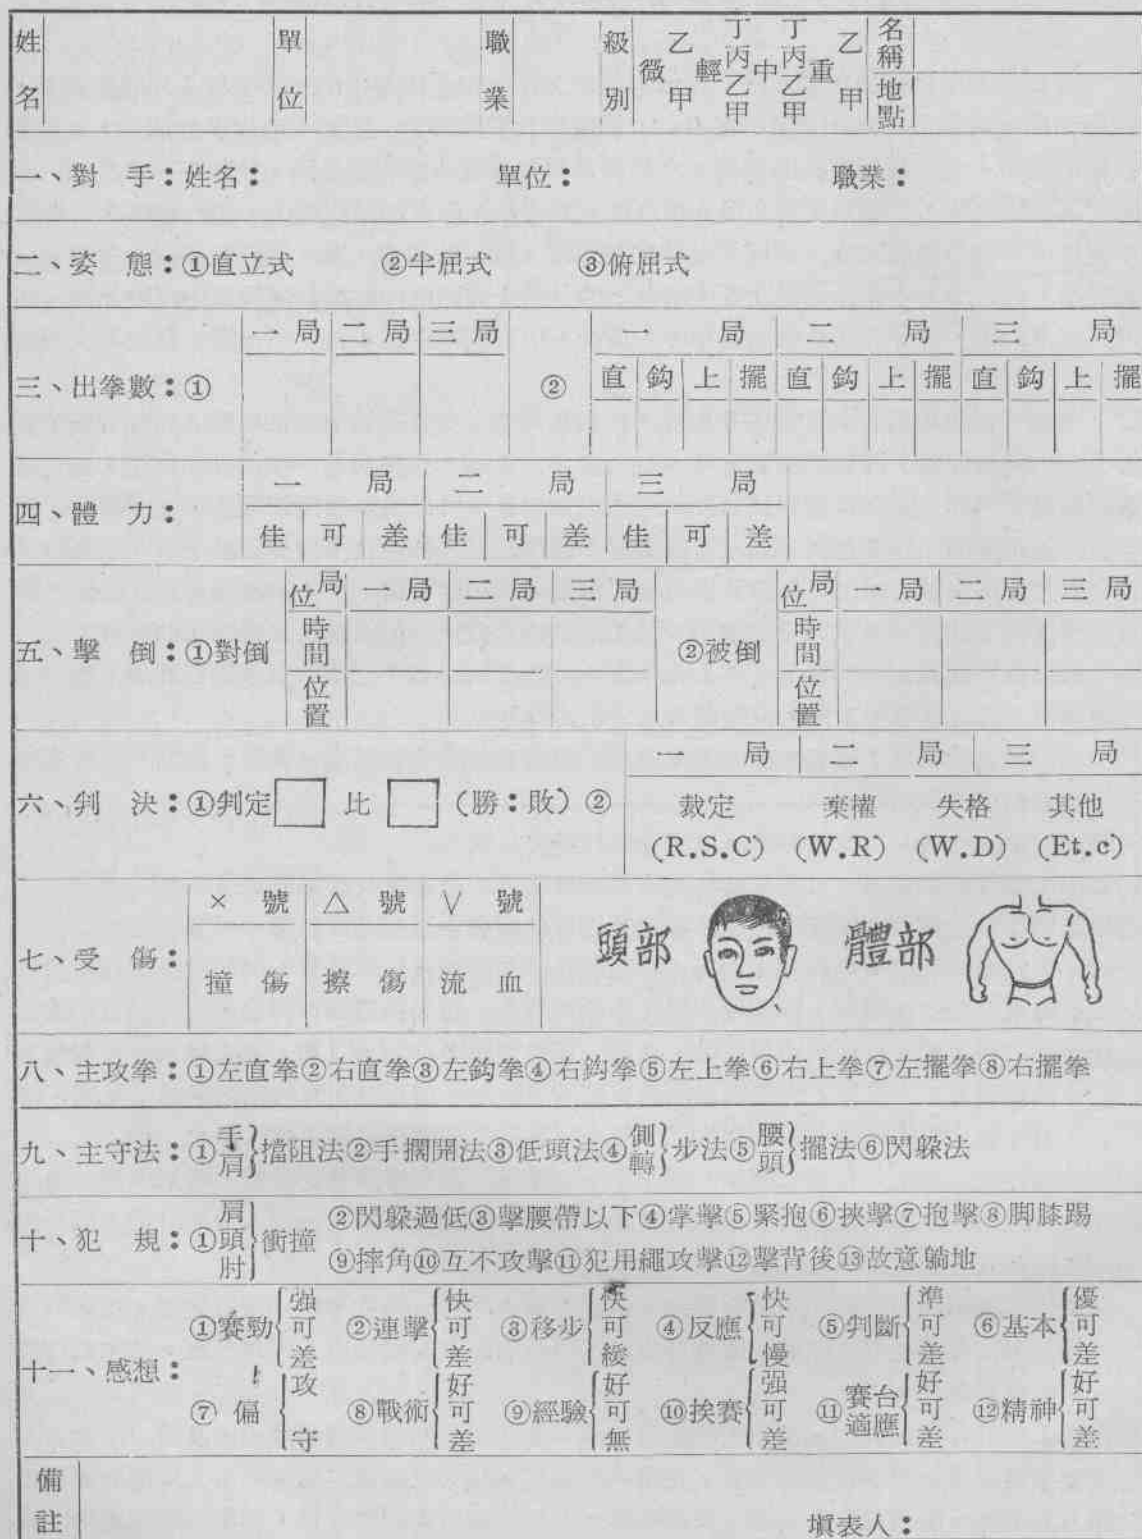 姓名 單位 職業 級別 微乙甲 輕丁丙乙甲 中丁丙乙甲 重乙甲 名稱
地點
一、對 手：姓名： 單位： 職業：
二、姿 態：①直立式 ②半屈式 ③俯屈式
一局 二局 三局 一 局 二 局 三 局
三、出拳數：① ② 直 鈎 上 擺 直 鈎 上 擺 直 鈎 上 擺
一 局 二 局 三 局
四、體 力： 佳 可 差 佳 可 差 佳 可 差
位局 一局 二局 三局 位局 一局 二局 三局
五、擊 倒：①對倒 時間 ②被倒 時間
位置 位置
一 局 二 局 三 局
六、判 決：①判定 比 (勝：敗) ② 裁定 棄權 失格 其他
(R.S.C) (W.R) (W.D) (Et.c)
× 號 △ 號 V 號
七、受 傷： 撞 傷 擦 傷 流 血 頭部 體部
八、主攻拳：①左直拳②右直拳③左鈎拳④右鈎拳⑤左上拳⑥右上拳⑦左擺拳⑧右擺拳
九、主守法：①手肩}擋阻法②手擱開法③低頭法④側轉}步法⑤腰頭}擺法⑥閃躱法
十、犯 規：①肩頭肘}衝撞 ②閃躱過低③擊腰帶以下④掌擊⑤緊抱⑥挾擊⑦抱擊⑧脚膝踢
⑨摔角⑩互不攻擊⑪犯用繩攻擊⑫擊背後⑬故意躺地
十一、感想： ①賽勁{强可差 ②連擊{快可差 ③移步{快可緩 ④反應{快可慢 ⑤判斷{準可差 ⑥基本{優可差
⑦偏{攻守 ⑧戰術{好可差 ⑨經驗{好可無 ⑩挨賽{强可差 ⑪賽台適應{好可差 ⑫精神{好可差
備註 填表人：